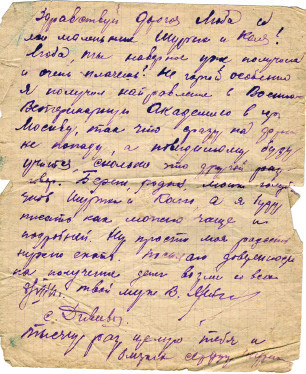 Здравствуй дорогая Люба и
мои маленькие Шурик и Коля!
Люба, ты наверно уже получила
и очень плачешь! Не горюй особенно
я получил направление в Военно-
Ветеринарную Академию в гор.
Москву, так что сразу на фронт
не попаду, а по-видимому буду
учиться, сколько это другой раз
Береги, родная, моих
Шурика и Колю а я буду
писать как можно чаще и
подробней. Ну просто моя радость
нужно ехать. Посылаю доверенность
на получение денег возьми со всех
твой муж В.
с.
тысячу раз целую тебя и